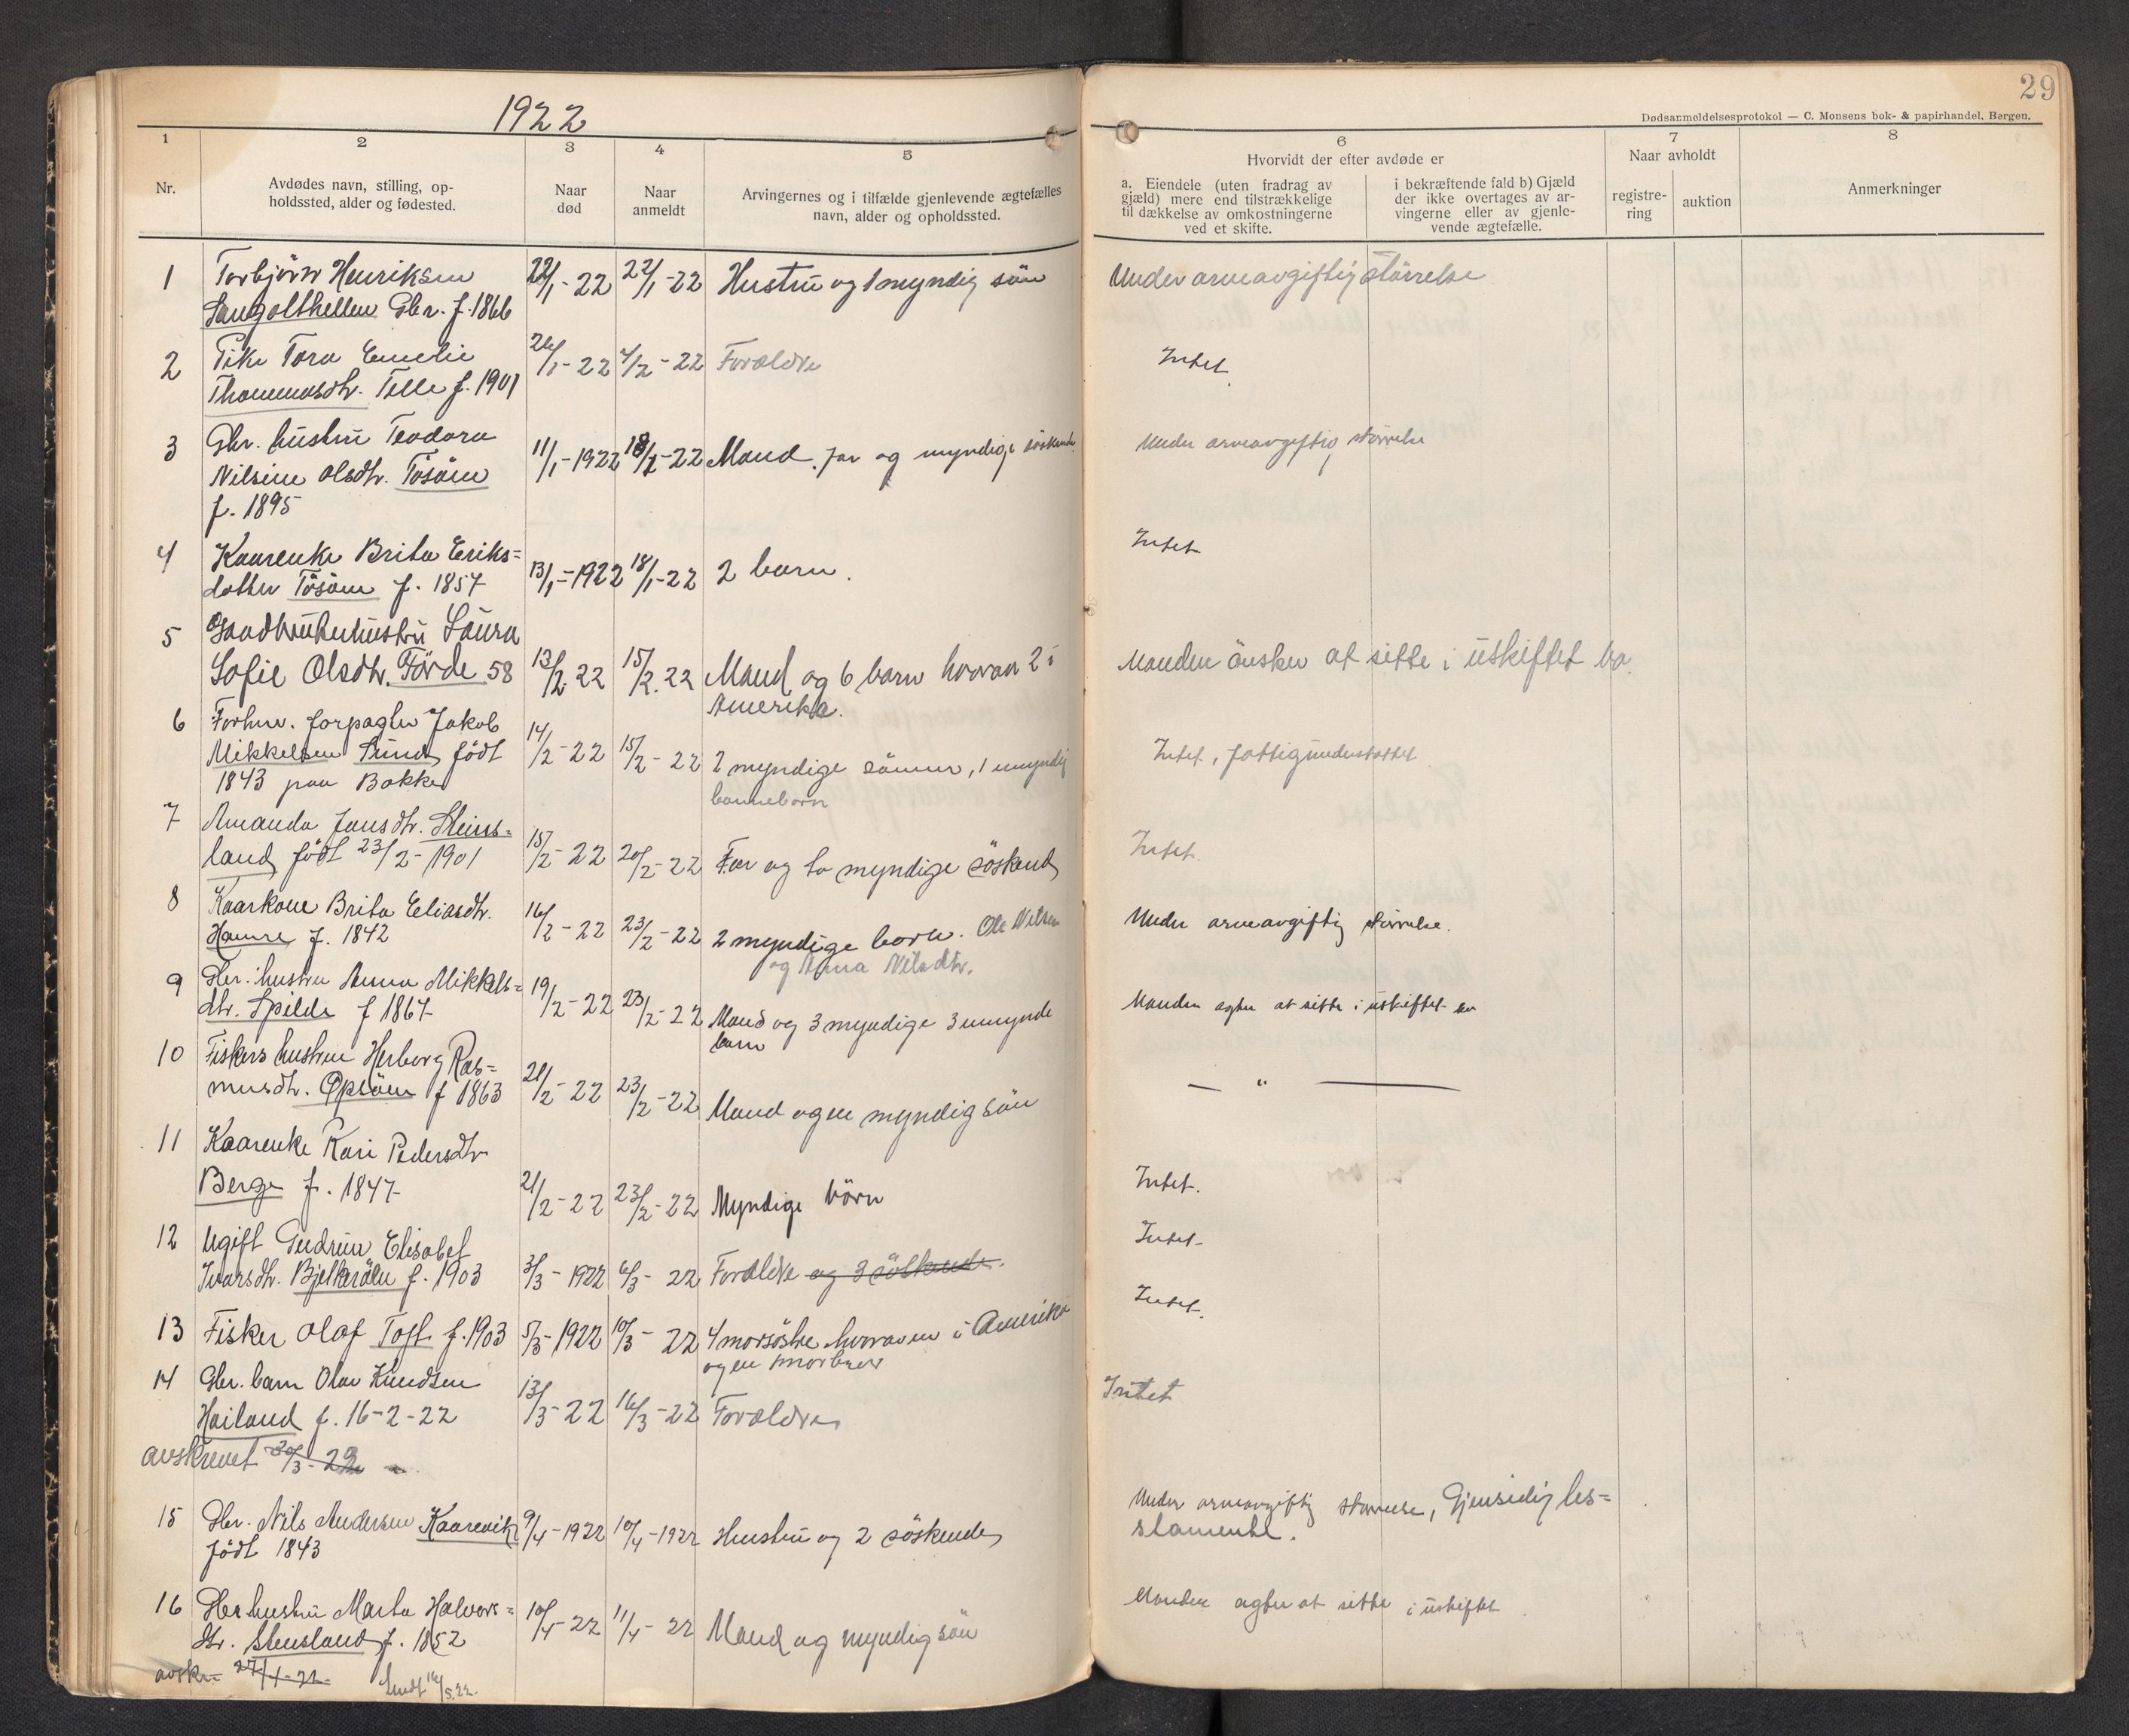 1922
29
Dødsanmeldelsesprotokol — C. Monsens bok- & papirhandel, Bergen.
1
2
3
4
5
6
7
8
Nr.
Avdødes navn, stilling, op-
holdssted, alder og fødested.
Naar
død
Naar
anmeldt
Arvingernes og i tilfælde gjenlevende ægtefælles
navn, alder og opholdssted.
Hvorvidt der efter avdøde er
a. Eiendele (uten fradrag av
gjæld) mere end tilstrækkelige
til dækkelse av omkostningerne
ved et skifte.
i bekræftende fald b) Gjæld
der ikke overtages av ar-
vingerne eller av gjenle-
vende ægtefælle.
Naar avholdt
registre-
ring
auktion
Anmerkninger
1 Torbjörn Henriksen 22/1-22 22/1-22 Hustru og 1 myndig sön Under arveavgiftig störrelse
Gbr. f. 1866
2 Pike Tora Emelie 26/1-22 4/2-22 Forældre Intet.
Thommasdtr. Telle f. 1901
3 Gbr. hustru Teodora 11/1-1922 18/1-22 Mand, far og myndige söskende Under arveavgiftig störrelse
Nilsine Olsdtr. Tösöen
f. 1895
4 Kaarenke Brita Eriks= 13/1-1922 18/1-22 2 barn. Intet
datter Tösöen f. 1857
5 Gaardbrukerhustru Laura
Sofie Olsdtr. Förde 58 13/2 22 15/2.22 Mand og 6 barn hvorav 2 i Manden önsker at sitte i uskiftet bo.
Amerika.
6 Forhv. forpagter Jakob 14/2-22 15/2-22
Mikkelsen Sund, födt 2 myndige sönner, 1 umyndig Intet, fattigunderstöttet
1843 paa Bokken barnebarn
7 Amanda Jansdtr. Steins=
land, födt 23/2-1901 15/2-22 20/2-22 Far og to myndige söskend Intet.
8 Kaarkone Brita Eliasdtr. 16/2-22 23/2-22 2 myndige born. Ole Nilsen Under arveavgiftig störrelse.
Hamre f. 1842 og Anna Nilsdtr.
9 Gbr. hustru Anna Mikkels= 19/2-22 23/2-22 Mand og 3 myndige 3 umynde Manden agter at sitte i uskiftet bo
dtr. Spilde f 1867 barn
10 Fiskers hustru Herborg Ras= 21/2-22 23/2-22 Mand og en myndig sön — " —
musdtr. Opsöen f 1863
11 Kaarenke Kari Pedersdtr
Berge f. 1847 21/2-22 23/2-22 Myndige börn Intet.
12 Ugift Gudrun Elisabet Intet.
Ivarsdtr. f. 1903 3/3-1922 6/3-22 Forældre og 3 söskende.
13 Fisker Olaf Toft f. 1903 5/3-1922 10/3-22 4 morsöstre hvorav en i Amerika Intet.
og en morbror
14 Gbr. barn Olav Knudsen
Hailand f. 16-2-22 13/3-22 16/3-22 Forældre Intet
avskrevet 20/3-22
15 Gbr. Nils Andersen Kaarevik 9/4-1922 10/4-1922 Hustru og 2 söskende Under arveavgiftig störrelse, Gjensidig tes=
födt 1843 stamente.
16 Gbr hustru Marta Halvors= 10/4-22 11/4-22 Mand og myndig sön Manden agter at sitte i uskiftet
dtr. Stensland f. 1852
avskr. 27/4-22 Sendt 16/5.22.